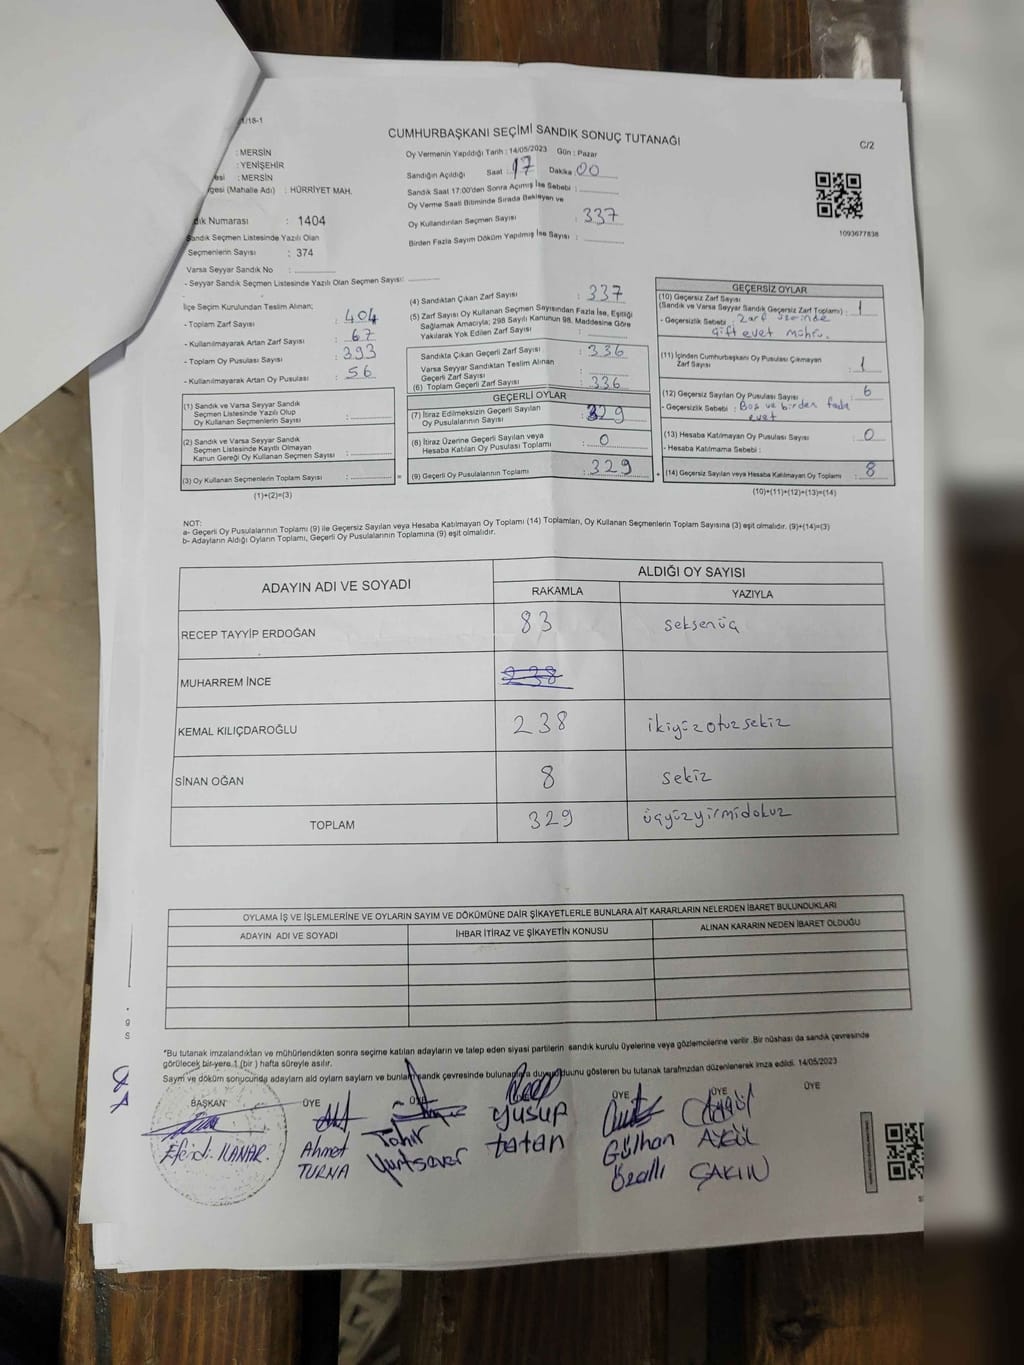 1/18-1
CUMHURBAŞKANI SEÇİMİ SANDIK SONUÇ TUTANAĞI
C/2
: MERSİN
: YENİŞEHİR
esi : MERSİN
gesi (Mahalle Adı) : HÜRRİYET MAH.
dık Numarası : 1404
Sandık Seçmen Listesinde Yazılı Olan
Seçmenlerin Sayısı : 374
Varsa Seyyar Sandık No :
- Seyyar Sandık Seçmen Listesinde Yazılı Olan Seçmen Sayısı:
Oy Vermenin Yapıldığı Tarih : 14/05/2023 Gün : Pazar
Sandığın Açıldığı Saat : 17 Dakika : 00
Sandık Saat 17:00'den Sonra Açımış İse Sebebi :
Oy Verme Saati Bitiminde Sırada Bekleyen ve
Oy Kullandırılan Seçmen Sayısı : 337
Birden Fazla Sayım Döküm Yapılmış İse Sayısı :
1093677838
İlçe Seçim Kurulundan Teslim Alınan;
- Toplam Zarf Sayısı : 404
- Kullanılmayarak Artan Zarf Sayısı : 67
- Toplam Oy Pusulası Sayısı : 393
- Kullanılmayarak Artan Oy Pusulası : 56
(1) Sandık ve Varsa Seyyar Sandık
Seçmen Listesinde Yazılı Olup
Oy Kullanan Seçmenlerin Sayısı :
(2) Sandık ve Varsa Seyyar Sandık
Seçmen Listesinde Kayıtlı Olmayan
Kanun Gereği Oy Kullanan Seçmen Sayısı :
(3) Oy Kullanan Seçmenlerin Toplam Sayısı : =
(1)+(2)=(3)
(4) Sandıktan Çıkan Zarf Sayısı : 337
(5) Zarf Sayısı Oy Kullanan Seçmen Sayısından Fazla İse, Eşitliği
Sağlamak Amacıyla; 298 Sayılı Kanunun 98. Maddesine Göre
Yakılarak Yok Edilen Zarf Sayısı :
Sandıkta Çıkan Geçerli Zarf Sayısı : 336
Varsa Seyyar Sandıktan Teslim Alınan
Geçerli Zarf Sayısı :
(6) Toplam Geçerli Zarf Sayısı : 336
GEÇERLİ OYLAR
(7) İtiraz Edilmeksizin Geçerli Sayılan
Oy Pusulalarının Sayısı : 329
(8) İtiraz Üzerine Geçerli Sayılan veya
Hesaba Katılan Oy Pusulası Toplamı : 0
(9) Geçerli Oy Pusulalarının Toplamı : 329 +
GEÇERSİZ OYLAR
(10) Geçersiz Zarf Sayısı
(Sandık ve Varsa Seyyar Sandık Geçersiz Zarf Toplamı) : 1
- Geçersizlik Sebebi : Zarf üzerinde
çift evet mührü.
(11) İçinden Cumhurbaşkanı Oy Pusulası Çıkmayan
Zarf Sayısı : 1
(12) Geçersiz Sayılan Oy Pusulası Sayısı : 6
- Geçersizlik Sebebi : Boş ve birden fazla
evet
(13) Hesaba Katılmayan Oy Pusulası Sayısı : 0
- Hesaba Katılmama Sebebi :
(14) Geçersiz Sayılan veya Hesaba Katılmayan Oy Toplamı : 8
(10)+(11)+(12)+(13)=(14)
NOT:
a- Geçerli Oy Pusulalarının Toplamı (9) ile Geçersiz Sayılan veya Hesaba Katılmayan Oy Toplamı (14) Toplamları, Oy Kullanan Seçmenlerin Toplam Sayısına (3) eşit olmalıdır. (9)+(14)=(3)
b- Adayların Aldığı Oyların Toplamı, Geçerli Oy Pusulalarının Toplamına (9) eşit olmalıdır.
ADAYIN ADI VE SOYADI
ALDIĞI OY SAYISI
RAKAMLA YAZIYLA
RECEP TAYYİP ERDOĞAN 83 seksenüç
MUHARREM İNCE 238
KEMAL KILIÇDAROĞLU 238 ikiyüzotuzsekiz
SİNAN OĞAN 8 sekiz
TOPLAM 329 üçyüzyirmidokuz
OYLAMA İŞ VE İŞLEMLERİNE VE OYLARIN SAYIM VE DÖKÜMÜNE DAİR ŞİKAYETLERLE BUNLARA AİT KARARLARIN NELERDEN İBARET BULUNDUKLARI
ADAYIN ADI VE SOYADI İHBAR İTİRAZ VE ŞİKAYETİN KONUSU ALINAN KARARIN NEDEN İBARET OLDUĞU
*Bu tutanak imzalandıktan ve mühürlendikten sonra seçime katılan adayların ve talep eden siyasi partilerin sandık kurulu üyelerine veya gözlemcilerine verilir. Bir nüshası da sandık çevresinde
görülecek bir yere 1 (bir) hafta süreyle asılır.
Sayım ve döküm sonucunda adayların ald oyların sayların ve bunların sandk çevresinde bulunan duyuruduunu gösteren bu tutanak tarafmzdan düzenlenerek imza edildi. 14/05/2023
BAŞKAN ÜYE ÜYE ÜYE ÜYE ÜYE
Ahmet TURNA
Tahir Yurtsever
Yusuf tatan
Gülhan Özallı
AYGÜL ŞAKIN